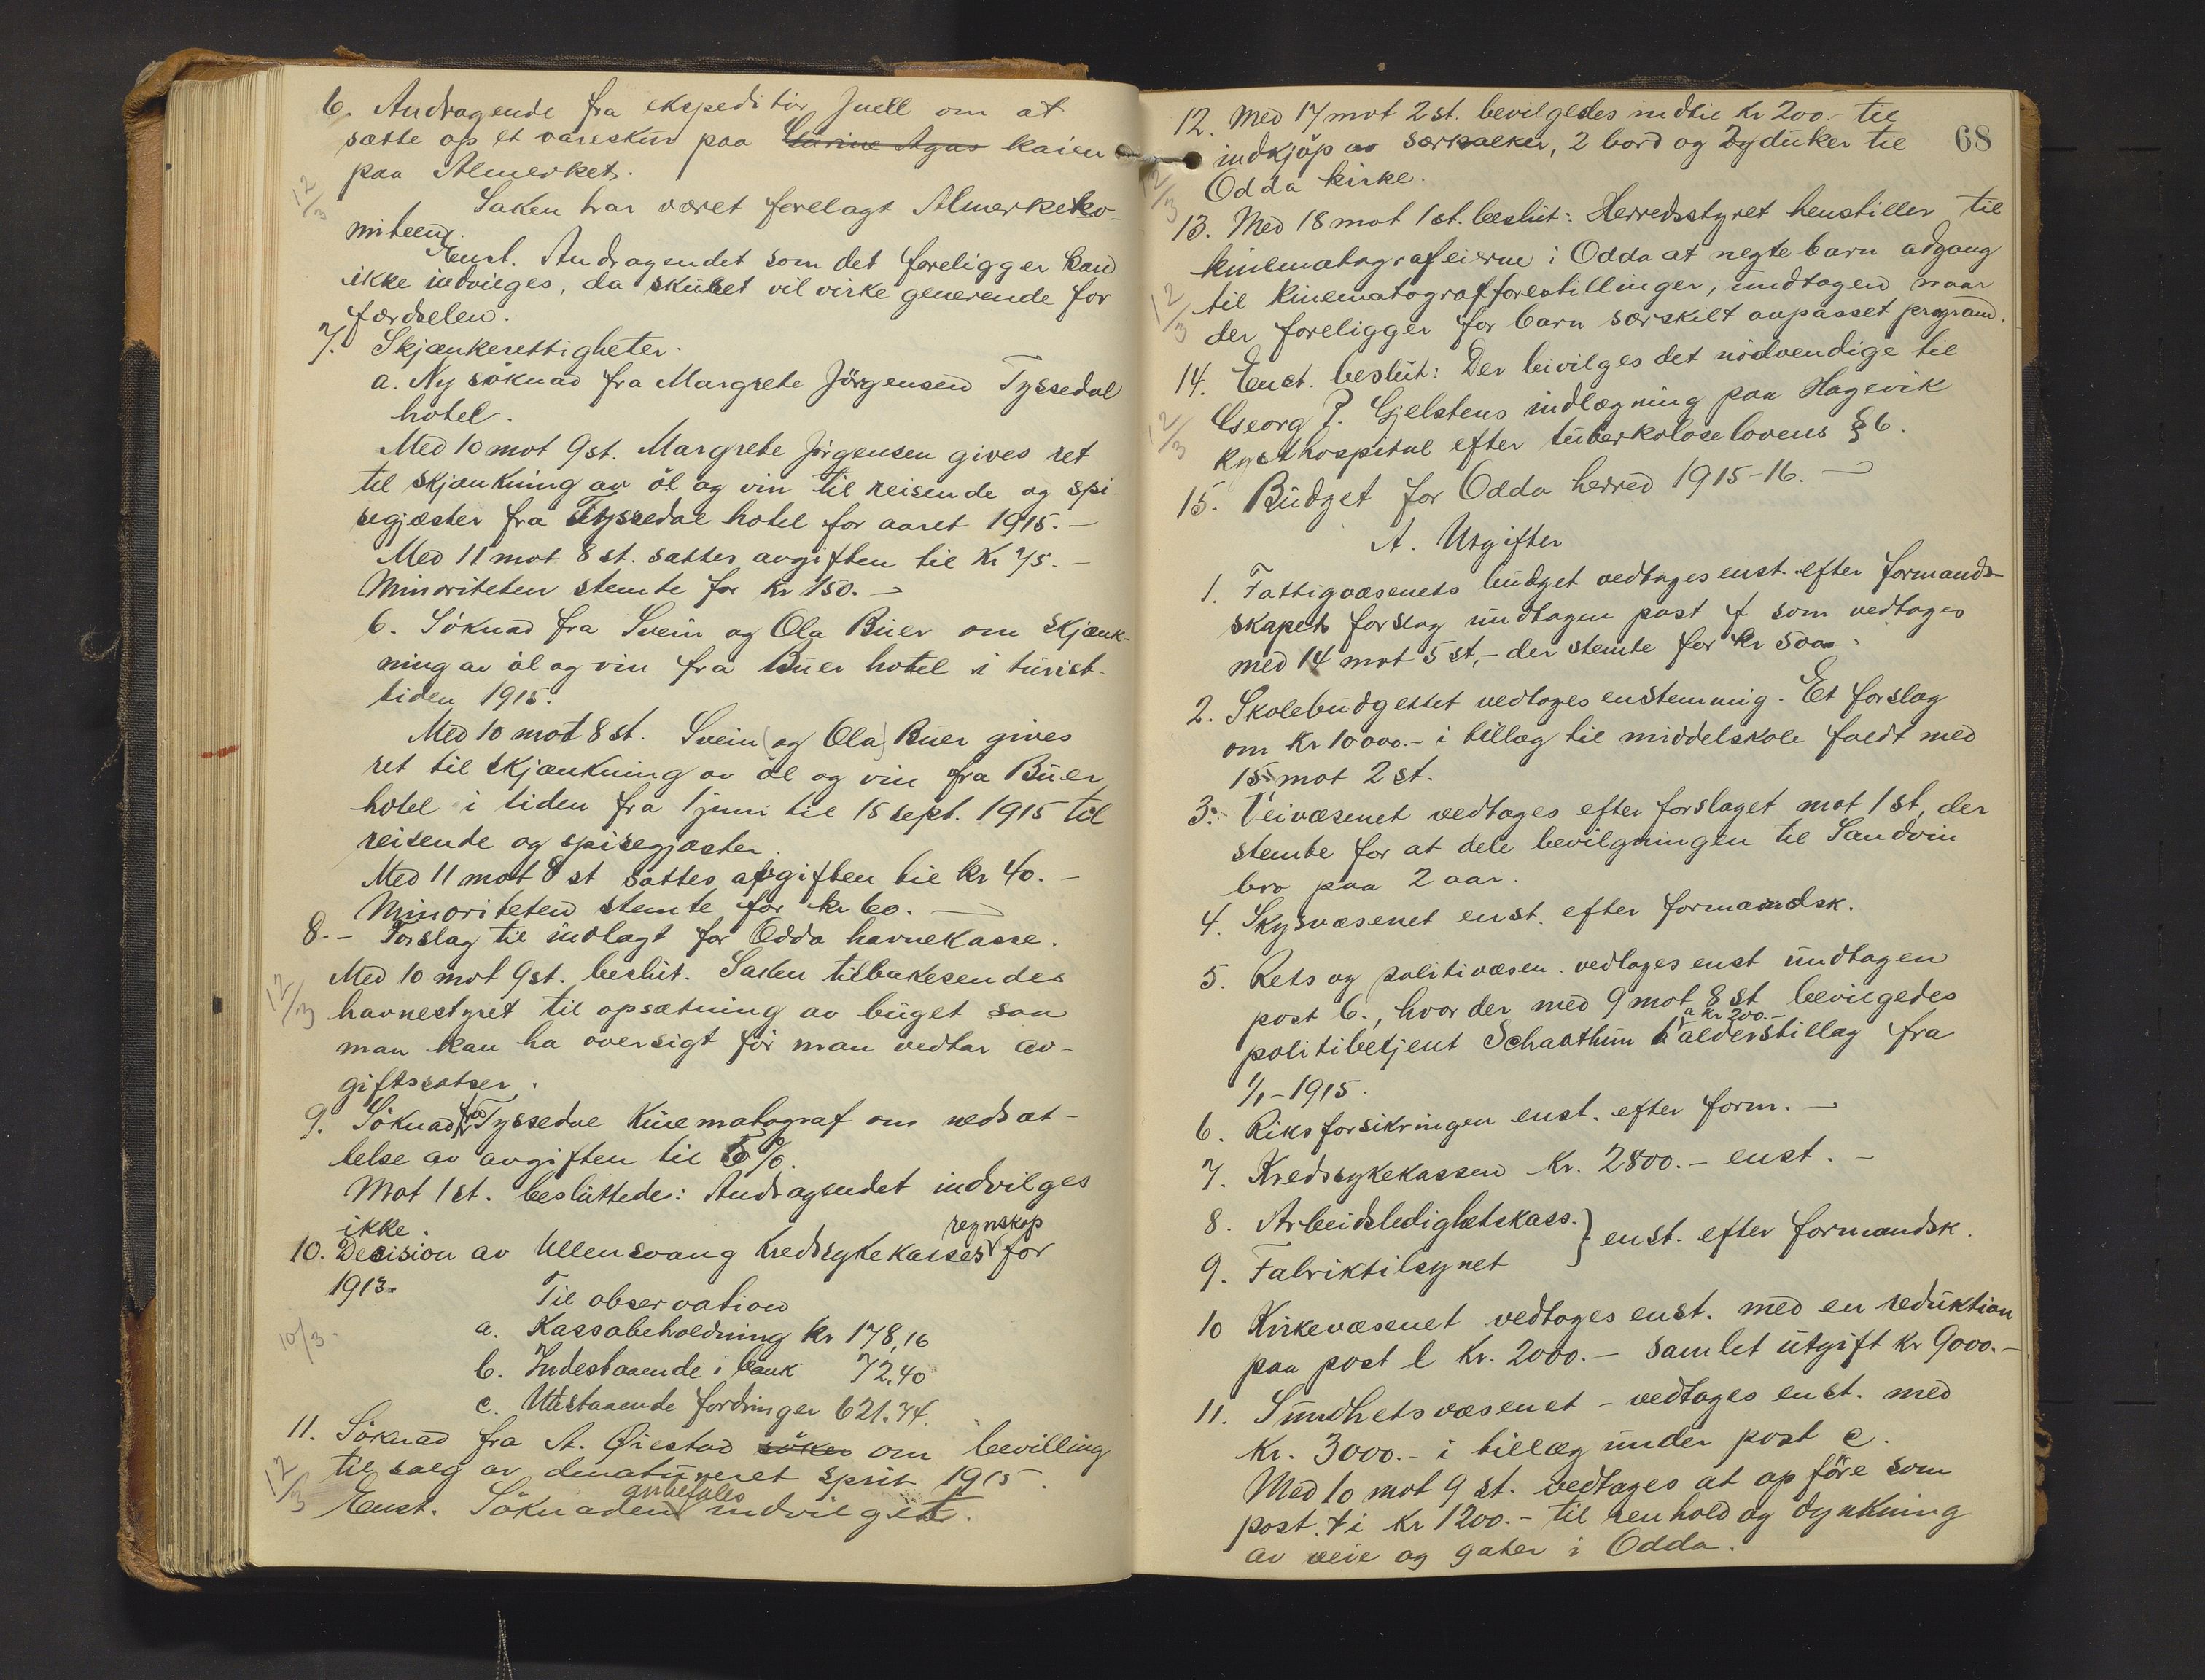 6. Andragende fra ekspeditör Juell om at
sætte op et vareskur paa kaien
paa Almerket.
12/3
Saken har været forelagt Almerkeko-
miteen.
Enst. Andragendet som det foreligger kan
ikke indvilges, da skuret vil virke generende for
færdselen.
7. Skjænkerettigheter.
a. Ny söknad fra Margrete Jörgensen Tyssedal
hotel.
Med 10 mot 9 st. Margrete Jörgensen gives ret
til skjænkning av öl og vin til reisende og spi-
segjæster fra Tyssedal hotel for aaret 1915.-
Med 11 mot 8 st. sattes avgiften til Kr 75.-
Minoriteten stemte for kr 150.-
b. Söknad fra Svein og Ola Buer om skjænk-
ning av öl og vin fra Buer hotel i turist-
tiden 1915.
Med 10 mot 8 st. Svein (og Ola) Buer gives
ret til skjænkning av öl og vin fra Buer
hotel i tiden fra 1 juni til 15 sept. 1915 til
reisende og spisegjæster.
Med 11 mot 8 st sattes avgiften til kr 40.-
Minoriteten stemte for kr 60.-
8.- Forslag til indlagt for Odda havnekasse.
Med 10 mot 9 st. beslut. Saken tilbakesendes
12/3
havnestyret til opsætning av buget saa
man kan ha oversigt för man vedtar av-
giftssatser.
9. Söknad fra Tyssedal Kinematograf om nedsæt-
telse av avgiften til 5 %.
Mot 1 st. besluttedes: Andragendet indvilges
ikke.
10. Decision av Ullensvang kredssykekasses regnskap for
1913.
Til observation
10/3
a. Kassabeholdning kr 178,16
b. Indestaaende i bank 72,40
c. Utestaaende fordringer 621.74.
11. Söknad fra A. Øiestad söker om bevilling
12/3
til salg av denatureret sprit 1915.
Enst. Söknaden anbefales indvilget.
68
12. Med 17 mot 2 st. bevilgedes indtil Kr 200.- til
indkjöp av særkalker, 2 bord og 2 duker til
12/3
Odda kirke.
13. Med 18 mot 1 st. beslut: Herredsstyret henstiller til
kinematografeierne i Odda at negte barn adgang
12/3
til kinematografforestillinger, undtagen naar
der foreligger for barn særskilt anpasset program.
14. Enst. beslut: Der bevilges det nödvendige til
12/3
Georg P. Gjelstens indlægning paa Hagevik
kysthospital efter tuberkuloselovens § 6.
15. Budget for Odda herred 1915-16.-
A. Utgifter
1. Fattigvæsenets budget vedtages enst. efter formand-
skapets forslag undtagen post f som vedtages
med 14 mot 5 st,- der stemte for kr 500.-
2. Skolebudgettet vedtages enstemmig. Et forslag
om Kr 10000.- i tillæg til middelskole faldt med
15 mot 2 st.
3.- Veivæsenet vedtages efter forslaget mot 1 st, der
stemte for at dele bevilgningen til Sandvin
bro paa 2 aar.
4. Skysvæsenet enst. efter formandsk.
5. Rets og politivæsen. vedtages enst undtagen
post b., hvor der med 9 mot 8 st bevilgedes
politibetjent Schaathun 1 alderstillæg a kr 200.- fra
1/1-1915.
6. Riksforsikringen enst. efter form.-
7. Kredssykekassen Kr. 2800.- enst.-
8. Arbeidsledighetskass. } enst. efter formandsk.
9. Fabriktilsynet
10 Kirkevæsenet vedtages enst. med en reduktion
paa post l Kr. 2000.- samlet utgift kr 9000.-
11. Sundhetsvæsenet - vedtages enst. med
Kr. 3000.- i tillæg under post c.
Med 10 mot 9 st. vedtages at opföre som
post. i kr 1200.- til renhold og dynkning
av veie og gater i Odda.